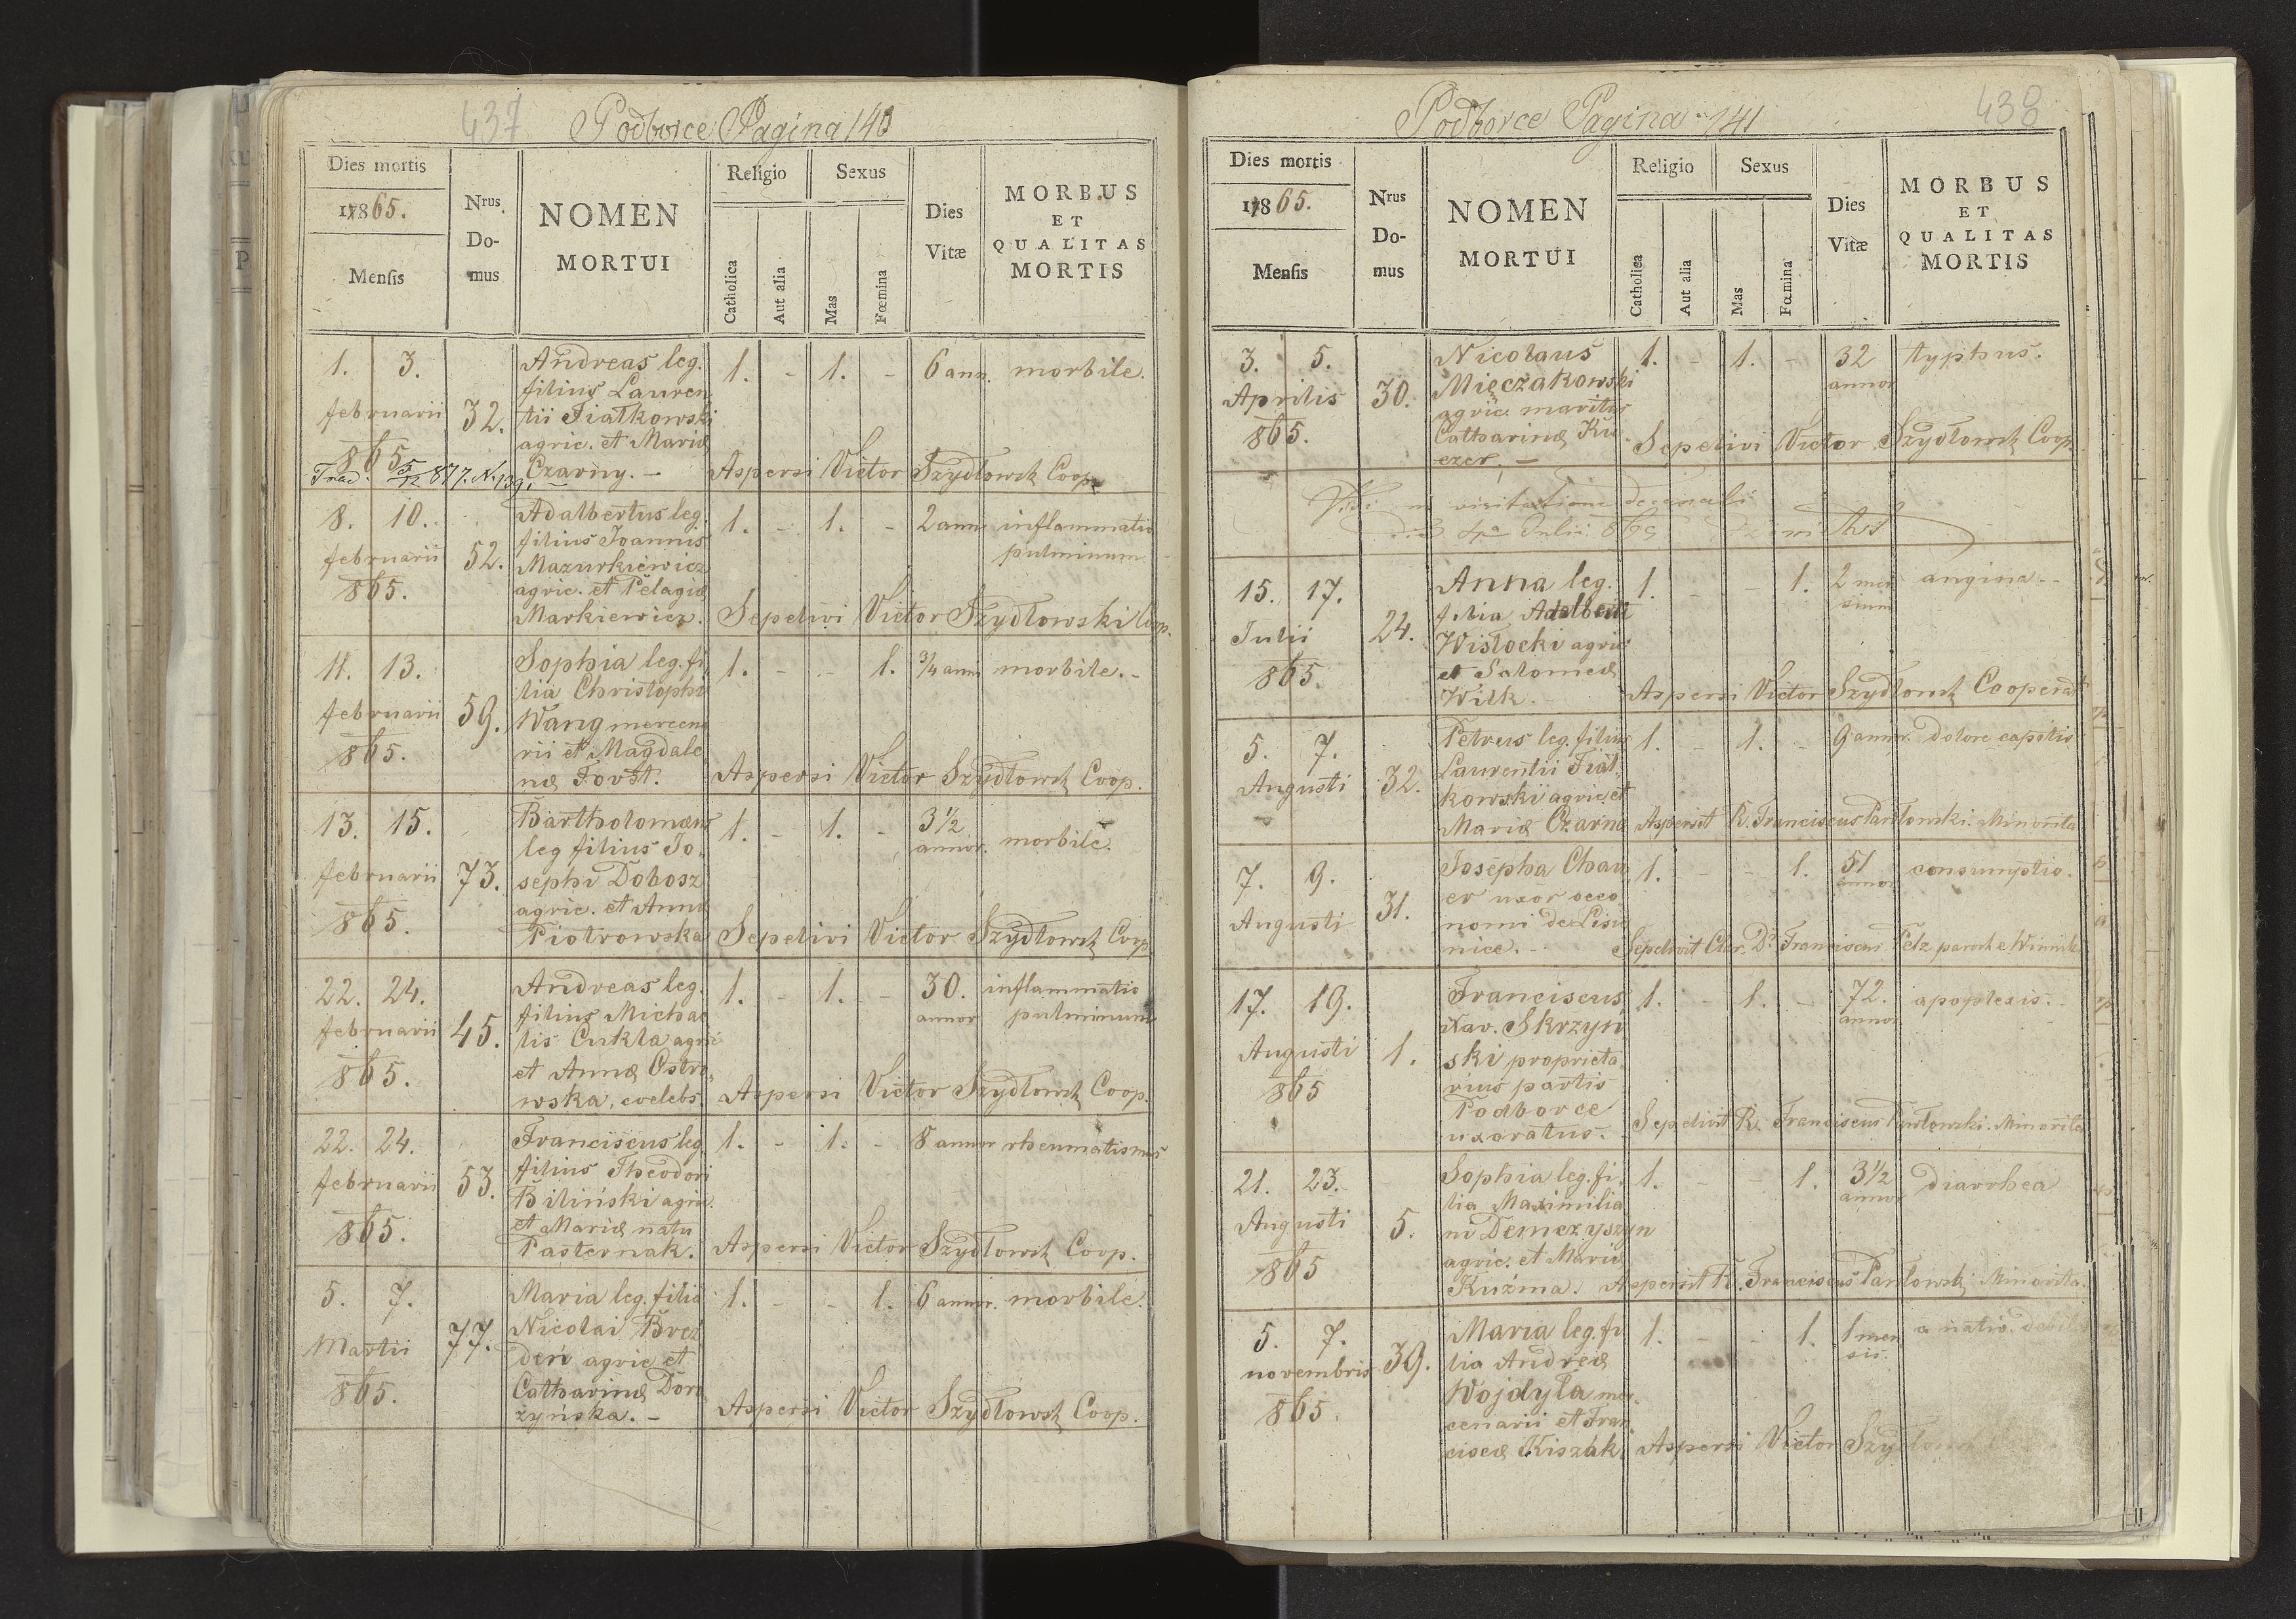 437 Podborce Pagina 140
Dies mortis
1865.
Mensis
Nrus. Do- mus
NOMEN MORTUI
Religio
Catholica
Aut alia
Sexus
Mas
Fœmina
Dies Vitæ
MORBUS
ET
QUALITAS
MORTIS
1. 3. Andreas leg. 1. - 1. - 6 ann. morbile.
filius Lauren
februarii 32. tii Fiatkowski
agric. et Mariæ
865 Czarny. - Aspersi Victor Szydłowsk Coop.
Trad. 5/12 877. N. 139.
8. 10. Adalbertus leg. 1. - 1. - 2 ann inflammatio
filius Joannis pulminum
februarii 52. Mazurkiewicz
865. agric. et Pelagiæ
Markiewicz. Sepelivi Victor Szydłowski Coop.
11. 13. Sophia leg. fi 1. - - 1. 3/4 ann morbile. -
lia Christophi
februarii 59. Wang mercena
865. rii et Magdale
næ Forst. Aspersi Victor Szydłowsk Coop.
13. 15. Bartholomæus 1. - 1. - 3 1/2 annor. morbile.
leg filius Jo
februarii 73. sephi Dobosz
865. agric. et Anna
Piotrowska Sepelivi Victor Szydłowsk Coop
22. 24. Andreas leg. 1. - 1. - 30. annor inflammatio
filius Michae pulminum
februarii 45. lis Cukla agric
865. et Annæ Ostro
wska, coelebs. Aspersi Victor Szydłowsk Coop.
22. 24. Franciscus leg. 1. - 1. - 8 annor rheumatismus
filius Theodori
februarii 53. Biliński agric.
865. et Mariæ natu
Pasternak. Aspersi Victor Szydłowsk Coop.
5. 7. Maria leg. filia 1. - - 1. 6 annor. morbile.
Martii 77. Nicolai
deń agric et
865. Catharinæ
żyńska. - Aspersi Victor Szydłowsk Coop.
Podborce Pagina 141 438
Dies mortis
1865.
Mensis
Nrus Do- mus
NOMEN MORTUI
Religio
Catholica
Aut alia
Sexus
Mas
Fœmina
Dies Vitæ
MORBUS
ET
QUALITAS
MORTIS
3. 5. Nicolaus 1. - 1. - 32 annor typhus.
Aprilis 30. Mięczakowski
865. agric. maritus
Catharinæ Ku
czer. - Sepelivi Victor Szydłowsk Coop.
Vidi in visitatione decanali
Julii 865
15. 17. Anna leg. 1. - - 1. 2 men sium angina --
filia Adalberti
Julii 24. Wisłocki agric
865. et Salomeæ
Wilk. - Aspersi Victor Szydłowsk Cooperat
5. 7. Petrus leg. filius 1. - 1. - 9 annor. dolore capitis
Augusti 32. Laurentii Fiat
kowski agric. et
Mariæ Czarna Aspersit R. Franciscus Pawłowski. Minorita
7. 9. Josepha Chau 1. - - 1. 51 annor consumptio.
er uxor oeco
Augusti 31. nomi de Lisie
nice. - Sepelivit Clar. D. Franciscus Pelz
17. 19. Franciscus 1. - 1. - 72. annor apoplexis. -
Xav. Skrzyń
Augusti 1. ski proprieta
865 rius partis
Podborce
uxoratus. - Sepelivit R. Franciscus Pawłowski. Minorita
21. 23. Sophia leg. fi. 1. - - 1. 3 1/2 annor diarrhea
lia Maximilia
Augusti 5. ni Demczyszyn
865 agric. et Mariæ
Kuźma. Aspersit R. Franciscus Pawłowsk Minorita.
5. 7. Maria leg. fi 1. - - 1. 1 men sis. a natio.
novembris 39. lia Andreæ
Wojdyła mer
865. cenarii et Fran
ciscæ Kiszak Aspersi Victor Szydłowsk